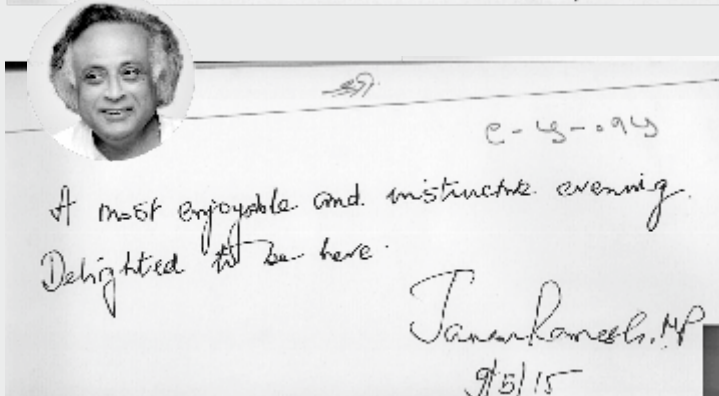 A most enjoyable and instructive evening.
Delighted to be here.
Jairam Ramesh, MP
9/5/15